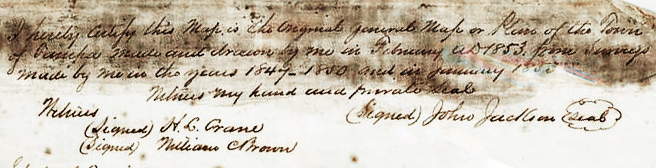 I hereby certify this Map is the Original General Map or Plan of the Town
of Tampa made and drawn by me in February AD 1853 from Surveys
made by me in the years 1847-1850 and in January
Witness my hand and private seal
Witness (Signed) John Jackson (seal)
(Signed) H. L. Crane
(Signed) William C Brown